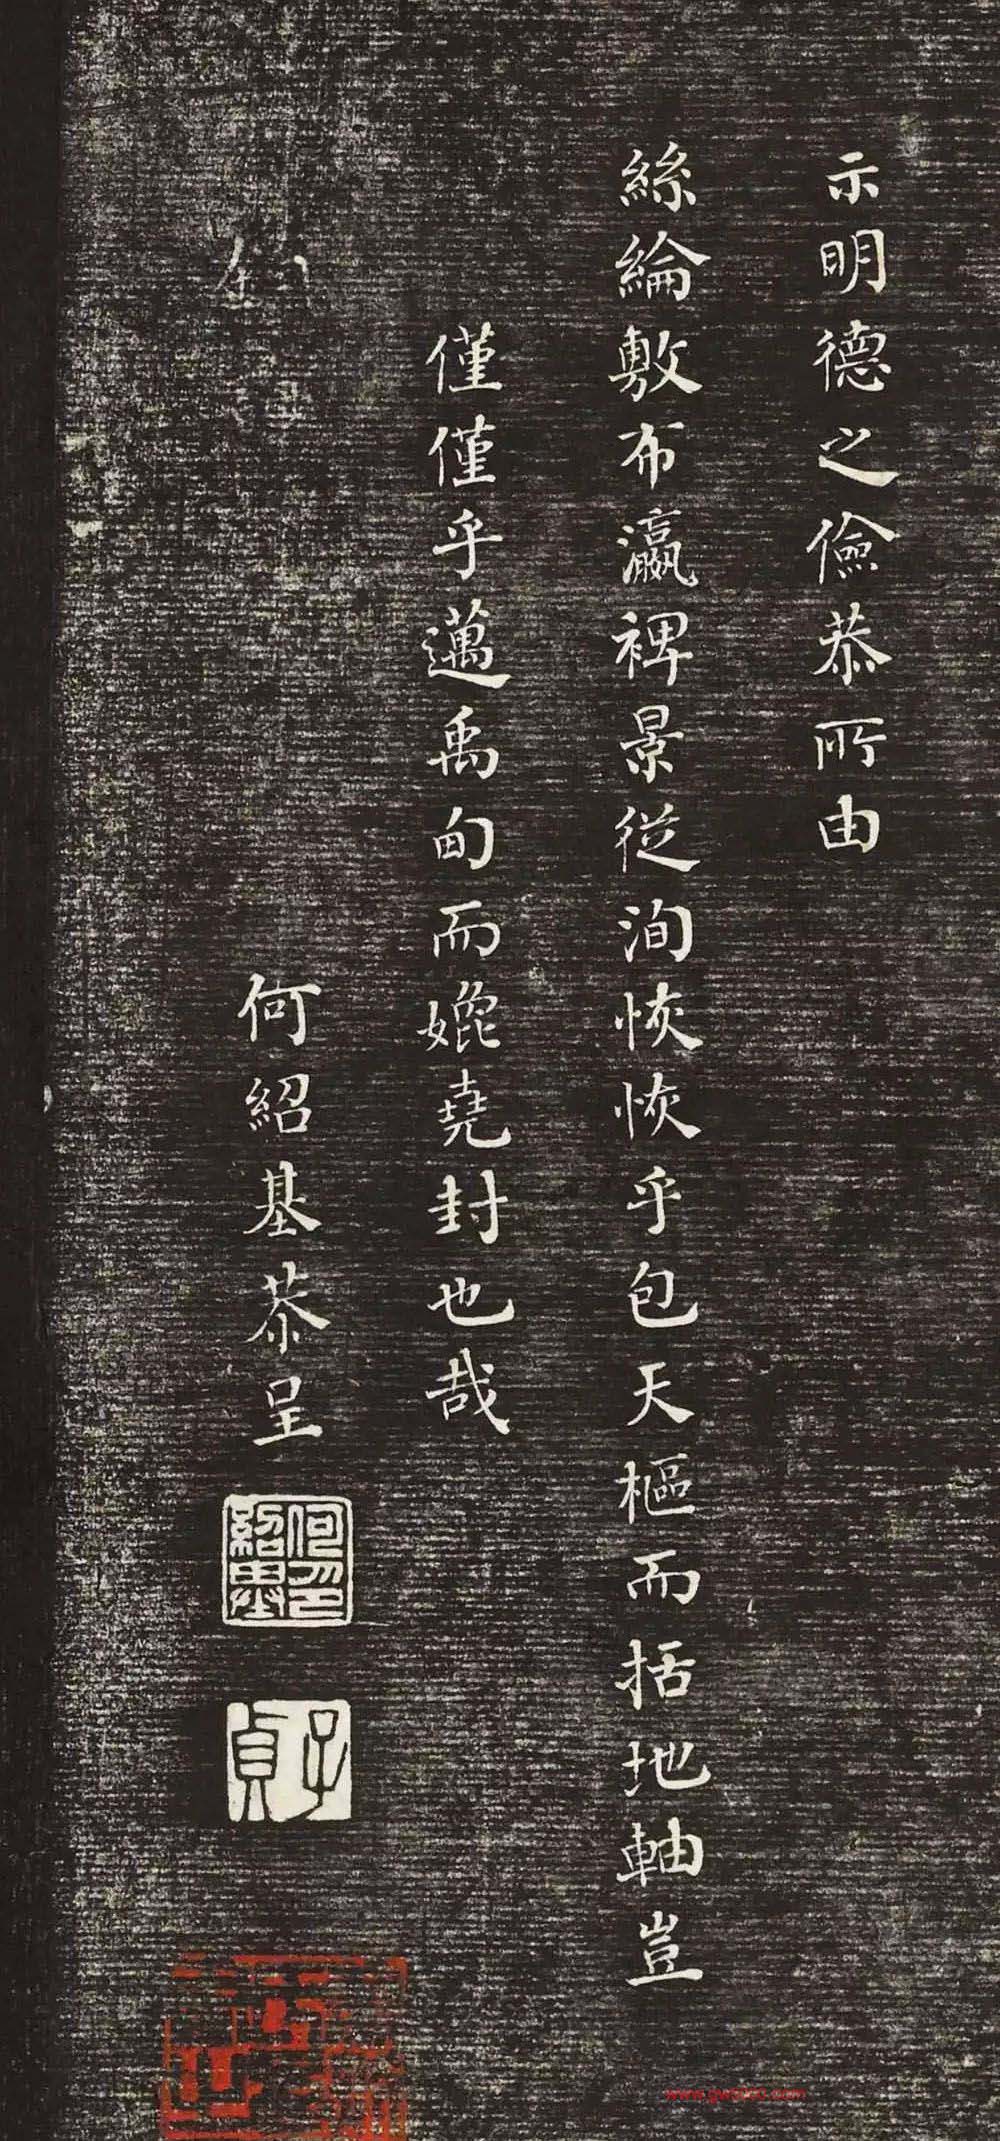 示明德之儉恭所由
絲綸敷布瀛裨景從洵恢恢乎包天樞而括地軸豈
僅僅乎邁禹甸而媲堯封也哉
何紹基恭呈
何紹基印
子貞